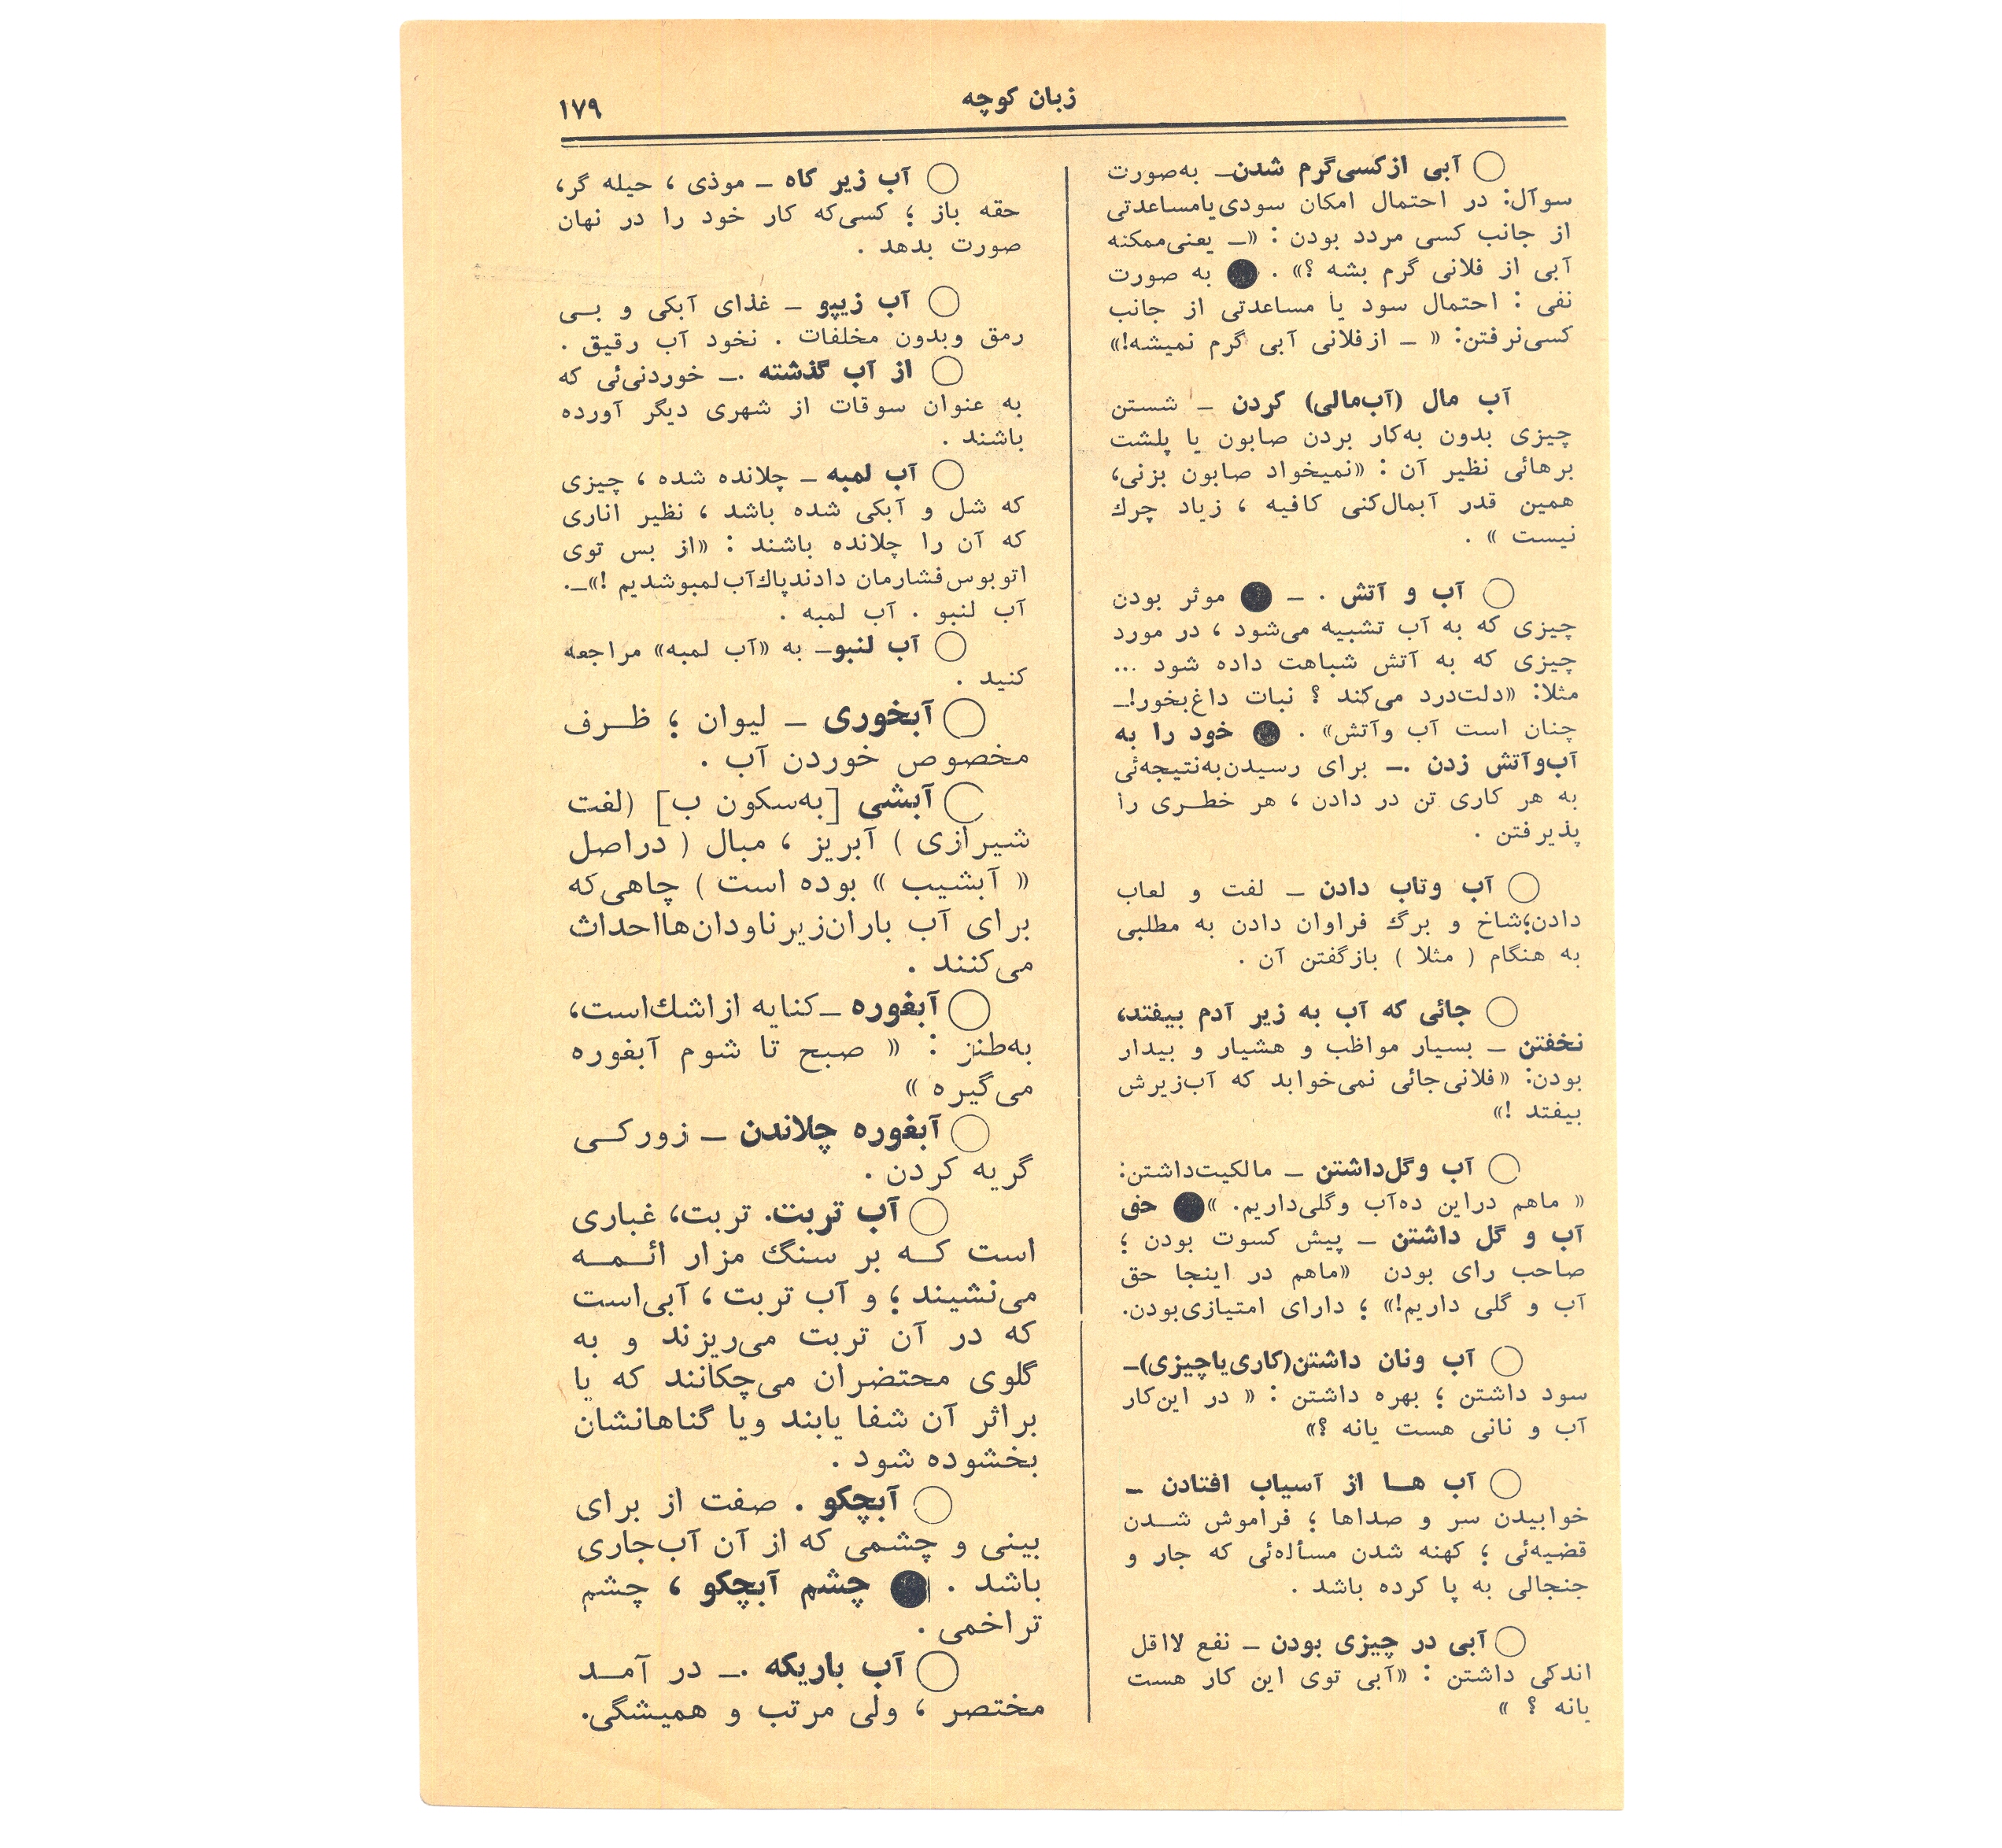 زبان کوچه
۱۷۹
○ آبی از کسی گرم شدن ـ به‌صورت
سوآل: در احتمال امکان سودی یا مساعدتی
از جانب کسی مردد بودن : «ـ یعنی ممکنه
آبی از فلانی گرم بشه ؟» . ● به صورت
نفی : احتمال سود یا مساعدتی از جانب
کسی نرفتن: « ـ از فلانی آبی گرم نمیشه!»
آب مال (آب‌مالی) کردن ـ شستن
چیزی بدون به‌کار بردن صابون یا پلشت
برهائی نظیر آن : «نمیخواد صابون بزنی،
همین قدر آبمال‌کنی کافیه ، زیاد چرك
نیست » .
○ آب و آتش . ـ ● موثر بودن
چیزی که به آب تشبیه می‌شود ، در مورد
چیزی که به آتش شباهت داده شود ...
مثلا: «دلت‌درد می‌کند ؟ نبات داغ بخور!ـ
چنان است آب وآتش» . ● خود را به
آب‌وآتش زدن .ـ برای رسیدن‌به‌نتیجه‌ئی
به هر کاری تن در دادن ، هر خطـری را
پذیرفتن .
○ آب وتاب دادن ـ لفت و لعاب
دادن؛شاخ و برگ فراوان دادن به مطلبی
به هنگام ( مثلا ) بازگفتن آن .
○ جائی که آب به زیر آدم بیفتد،
نخفتن ـ بسیار مواظب و هشیار و بیدار
بودن: «فلانی‌جائی نمی‌خوابد که آب‌زیرش
بیفتد !»
○ آب وگل‌داشتن ـ مالکیت‌داشتن:
« ماهم دراین ده‌آب وگلی‌داریم. »● حق
آب و گل داشتن ـ پیش کسوت بودن ؛
صاحب رای بودن «ماهم در اینجا حق
آب و گلی داریم!» ؛ دارای امتیازی‌بودن.
○ آب ونان داشتن(کاری‌یاچیزی)ـ
سود داشتن ؛ بهره داشتن : « در این‌کار
آب و نانی هست یانه ؟»
○ آب هــا از آسیاب افتادن ـ
خوابیدن سر و صداها ؛ فراموش شــدن
قضیه‌ئی ؛ کهنه شدن مسأله‌ئی که جار و
جنجالی به پا کرده باشد .
○ آبی در چیزی بودن ـ نفع لااقل
اندکی داشتن : «آبی توی این کار هست
یانه ؟ »
○ آب زیر کاه ـ موذی ، حیله گر،
حقه باز ؛ کسی‌که کار خود را در نهان
صورت بدهد .
○ آب زیپو ـ غذای آبکی و بــی
رمق وبدون مخلفات . نخود آب رقیق .
○ از آب گذشته .ـ خوردنی‌ئی که
به عنوان سوقات از شهری دیگر آورده
باشند .
○ آب لمبه ـ چلانده شده ، چیزی
که شل و آبکی شده باشد ، نظیر اناری
که آن را چلانده باشند : «از بس توی
اتوبوس‌فشارمان دادندپاك‌آب‌لمبوشدیم !»ـ.
آب لنبو . آب لمبه .
○ آب لنبوـ به «آب لمبه» مراجعه
کنید .
○ آبخوری ـ لیوان ؛ ظــرف
مخصوص خوردن آب .
○ آبشی [به‌سکون ب] (لغت
شیرازی ) آبریز ، مبال ( دراصل
« آبشیب » بوده است ) چاهی‌که
برای آب باران‌زیرناودان‌هااحداث
می‌کنند .
○ آبغوره ـ کنایه ازاشك‌است،
به‌طنز : « صبح تا شوم آبغوره
می‌گیره »
○ آبغوره چلاندن ـ زورکــی
گریه کردن .
○ آب تربت. تربت، غباری
است کــه بر سنگ مزار ائــمــه
می‌نشیند ؛ و آب تربت ، آبی‌است
که در آن تربت می‌ریزند و به
گلوی محتضران می‌چکانند که یا
براثر آن شفا یابند ویا گناهانشان
بخشوده شود .
○ آبچکو . صفت از برای
بینی و چشمی که از آن آب‌جاری
باشد . ● چشم آبچکو ، چشم
تراخمی .
○ آب باریکه .ـ در آمــد
مختصر ، ولی مرتب و همیشگی.